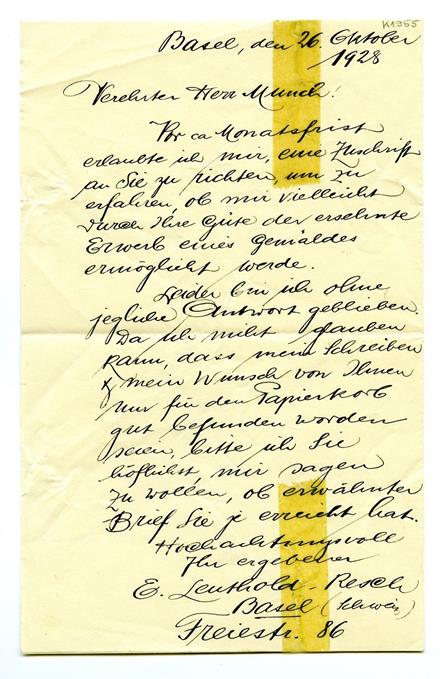 K1355
Basel, den 26. Oktober
1928
Verehrter Herr Munch!
Vor ca Monatsfrist
erlaubte ich mir, eine Zuschrift
an Sie zu richten, um zu
erfahren, ob mir vielleicht
durch Ihre Güte der ersehnte
Erwerb eines Gemäldes
ermöglicht werde.
Leider bin ich ohne
jegliche Antwort geblieben.
Da ich nicht glauben
kann, dass mein Schreiben
& mein Wunsch von Ihnen
nur für den Papierkorb
gut befunden worden
seien, bitte ich Sie
höflichst, mir sagen
zu wollen, ob erwähnter
Brief Sie je erreicht hat.
Hochachtungsvoll
Ihr ergebener
E. Leuthold-Resch
Basel (Schweiz)
Freiestr. 86